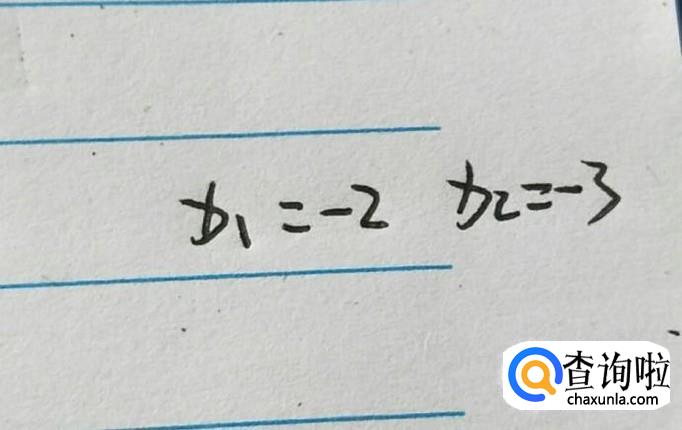 x₁ = -2 x₂ = -3
查询啦
chaxunla.com